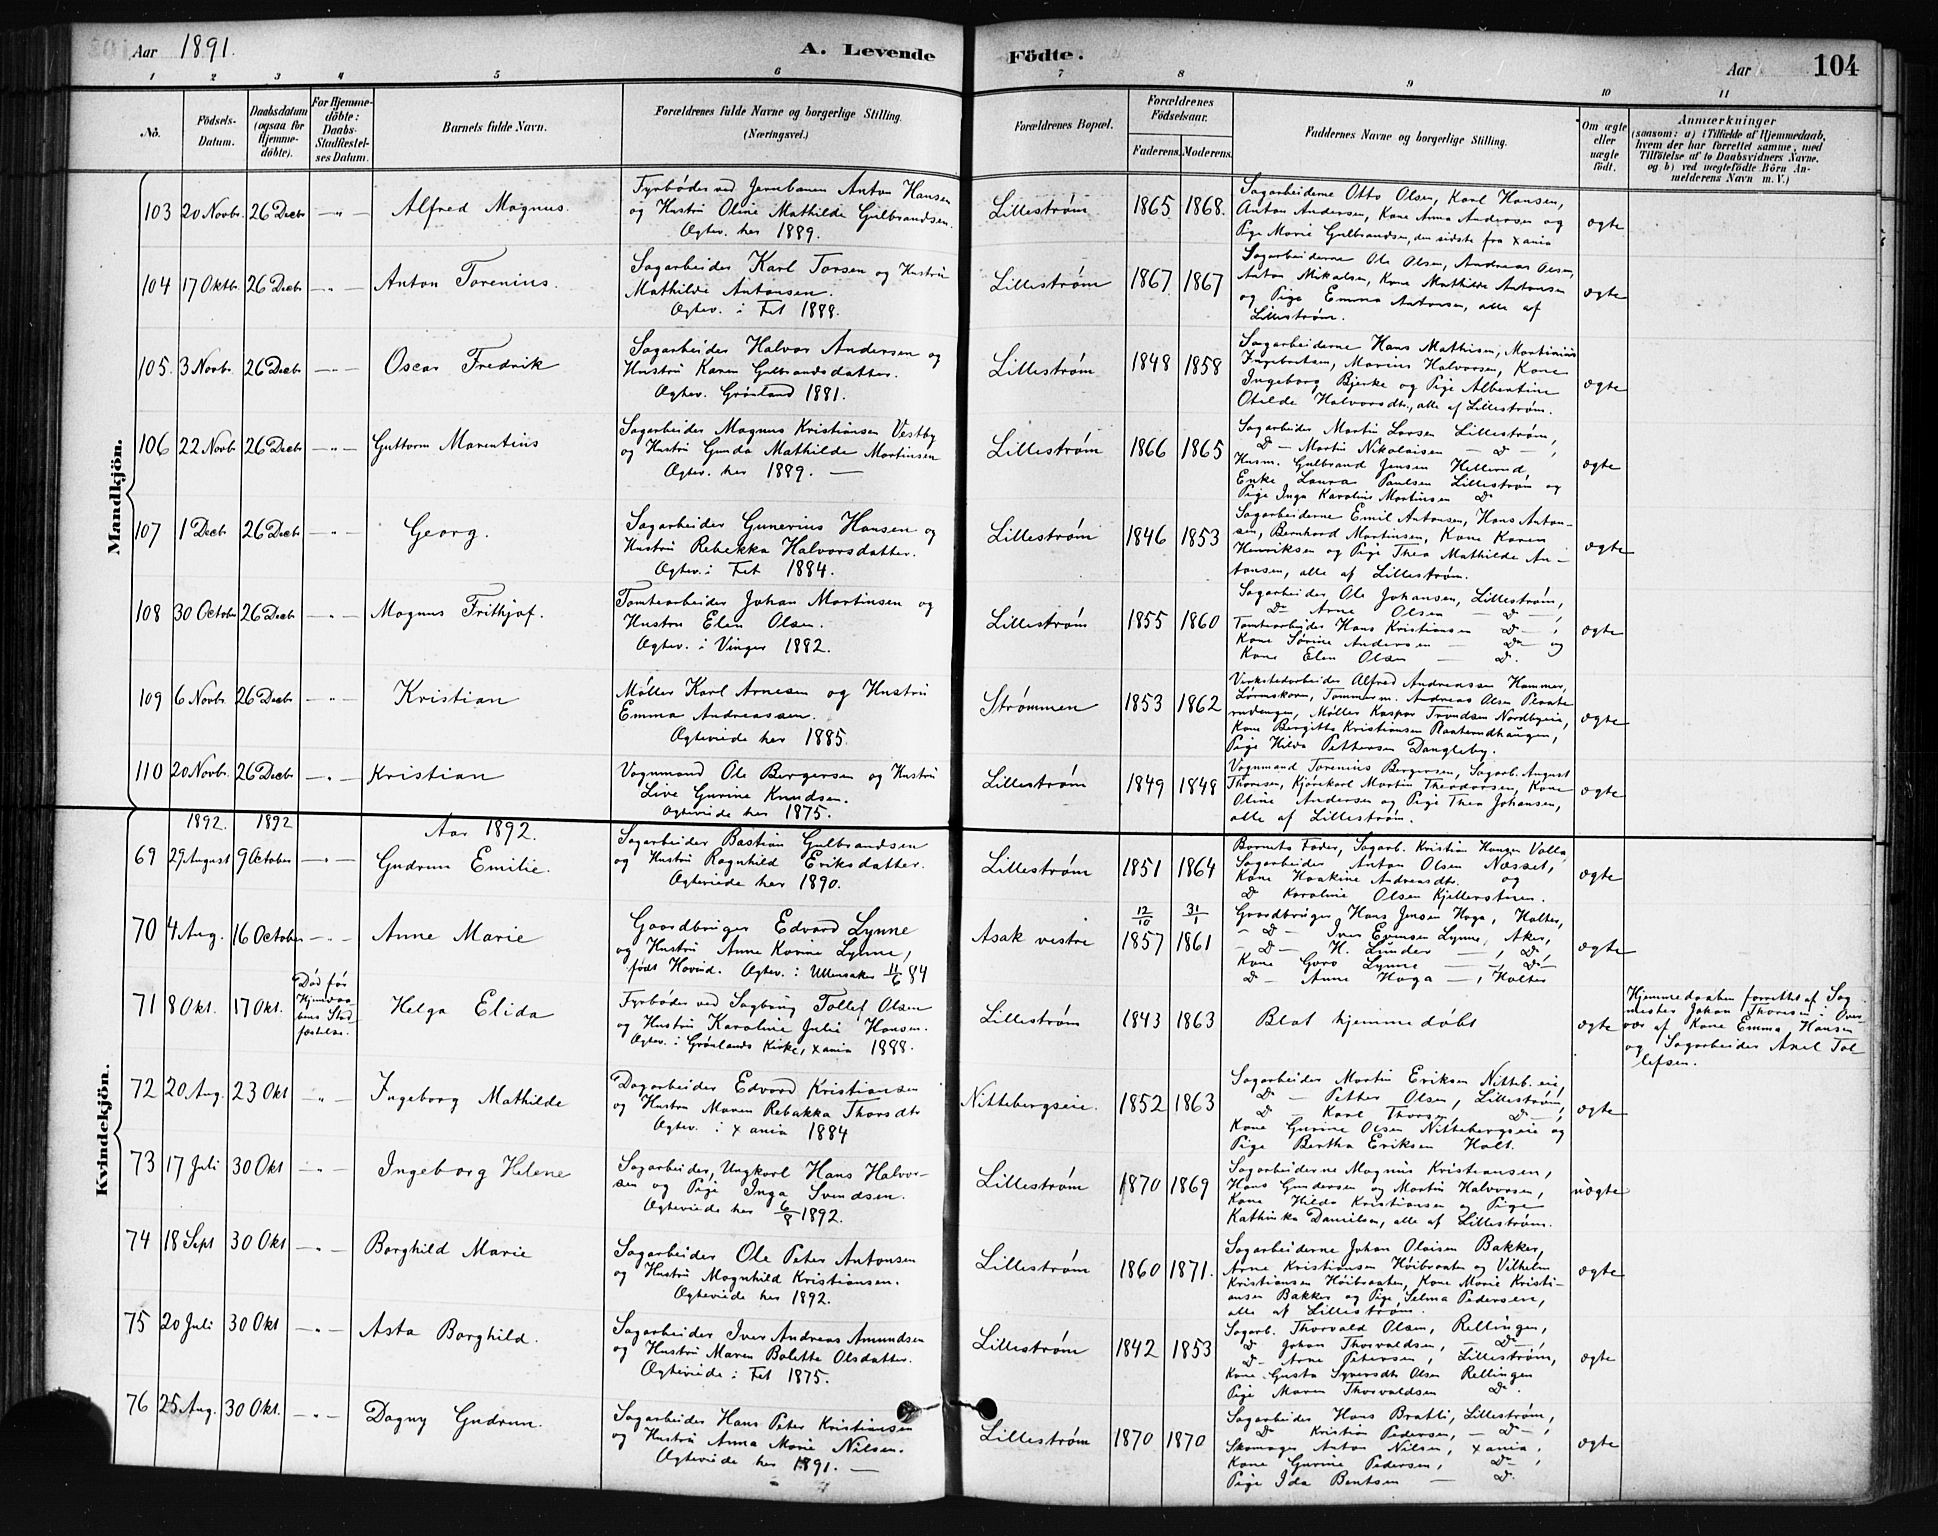 Aar 1891.
A. Levende Födte.
Aar 104
1 2 3 4 5 6 7 8 9 10 11
No.
Födsels-Datum.
Daabsdatum (ogsaa for Hjemme-döbte).
For Hjemme-döbte: Daabs-Stadfæstel-ses Datum.
Barnets fulde Navn.
Forældrenes fulde Navne og borgerlige Stilling. (Næringsvei.)
Forældrenes Bopæl.
Forældrenes Födselsaar.
Faderens. Moderens.
Faddernes Navne og borgerlige Stilling.
Om ægte eller uægte födt.
Anmærkninger
(saasom: a) i Tilfælde af Hjemmedaab, hvem der har forrettet samme, med Tilföielse af to Daabsvidners Navne, og b) ved uægtefödte Börn An-melderens Navn m. V.)
Mandkjön.
103 20 Novbr. 26 Decbr —"— Alfred Magnus.
Fyrbøder ved Jernbanen Anton Hansen
og Hustru Oline Mathilde Gulbrandsen.
Ægtev. her 1889.
Lillestrøm 1865 1868.
Sagarbeiderne Otto Olsen, Karl Hansen,
Anton Andersen, Kone Anna Andersen og
Pige Marie Gulbrandsen, den sidste fra Xania
ægte
104 17 Oktbr 26 Decbr —"— Anton Torenius.
Sagarbeider Karl Torsen og Hustru
Mathilde Antonsen.
Ægtev. i Fet 1888.
Lillestrøm 1867 1867
Sagarbeiderne Ole Olsen, Andreas Olsen,
Anton Mikalsen, Kone Mathilde Antonsen
og Pige Emma Antonsen, alle af
Lillestrøm.
ægte
105. 3 Novbr. 26 Decbr —"— Oscar Fredrik
Sagarbeider Halvor Andersen og
Hustru Karen Gulbrandsdatter.
Ægtev. Grønland 1881.
Lillestrøm 1848 1858
Sagarbeiderne Hans Mathisen, Martinius
Ingebretsen, Marius Halvorsen, Kone
Ingeborg Bjerke og Pige Albertine
Otilde Halvorsdtr., alle af Lillestrøm.
ægte
106 22 Novbr 26 Decbr —"— Guttorm Marentius
Sagarbeider Magnus Kristiansen Vestby
og Hustru Gunda Mathilde Martinsen
Ægtev. her 1889. —
Lillestrøm 1866 1865
Sagarbeider Martin Larsen Lillestrøm,
Do — Martin Nikolaisen — Do — ,
Husm. Gulbrand Jensen Hellerud,
Enke Laura Paulsen Lillestrøm og
Pige Inga Karolius Martinsen Do
ægte
107 1 Decbr 26 Decbr —"— Georg.
Sagarbeider Gunerius Hansen og
Hustru Rebekka Halvorsdatter.
Ægtev. i Fet 1884.
Lillestrøm 1846 1853
Sagarbeiderne Emil Antonsen, Hans Anton-
sen, Bernhard Martinsen, Kone Karen
Henriksen og Pige Thea Mathilde An-
tonsen, alle af Lillestrøm.
ægte
108 30 October 26 Decbr —"— Magnus Frithjof.
Tomtearbeider Johan Martinsen og
Hustru Elen Olsen.
Ægtev. i Vinger 1882.
Lillestrøm 1855 1860
Sagarbeider Ole Johansen, Lillestrøm,
Do Arne Olsen — Do — ,
Tomtearbeider Hans Kristiansen Do — ,
Kone Sørine Andersen — Do — og
Kone Elen Olsen — Do.
ægte
109 6 Novbr. 26 Decbr —"— Kristian
Møller Karl Arnesen og Hustru
Emma Andreassen.
Ægteviede her 1885.
Strømmen 1853 1862
Verkstedarbeider Alfred Andreassen Hammer,
Lørenskoven, Tømmerm. Andreas Olsen
Møller Kaspar Trondsen Nordbyeie,
Kone Bergitte Kristiansen
Pige Hilda Pettersen Dangleby.
ægte
110 20 Novbr. 26 Decbr —"— Kristian
Vognmand Ole Bergersen og Hustru
Live Gurine Knudsen.
Ægteviede her 1875.
Lillestrøm 1849 1848
Vognmand Torenius Bergersen, Sagarb. August
Thoresen, Kjørekarl Martin Theodorsen, Kone
Oline Andersen og Pige Thea Johansen,
alle af Lillestrøm.
ægte
1892. 1892 Aar 1892.
Kvindekjön.
69 29 August 9 October —"— Gudrun Emilie.
Sagarbeider Bastian Gulbrandsen
og Hustru Ragnhild Eriksdatter.
Ægteviede her 1890.
Lillestrøm 1851 1864
Barnets Fader, Sagarb. Kristian Hansen Valla,
Sagarbeider Anton Olsen Næsset,
Kone Haakine Andreasdtr. og
Do Karoline Olsen Kjellerstuen.
ægte
70 4 Aug. 16 October —"— Anne Marie
Gaardbruger Edvard Lynne
og Hustru Anne Karine Lynne,
født Hovind. Ægtev. i Ullensaker 11/6 84
Asak vestre 12/10 1857 31/1 1861
Gaardbruger Hans Jensen Haga, Holter,
— Do — Iver Evensen Lynne, Aker,
— Do — H. Lunder — , Do ,
Kone Goro Lynne — , Do —
Do — Anne Haga — , Holter
ægte
71 8 Okt. 17 Okt.
Død før
Hjemmedaa-
bens Stad-
fæstelse.
Helga Elida
Fyrbøder ved Sagbrug Tollef Olsen
og Hustru Karoline Julie Hansen.
Ægtev. i Grønlands Kirke, Xania 1888.
Lillestrøm 1843 1863
Blot hjemmedøbt
ægte
Hjemmedaaben forrettet af Sag-
mester Johan Thoresen i Over-
vær af Kone Emma Hansen
og Sagarbeider Axel Tol-
lefsen.
72 20 Aug. 23 Okt —"— Ingeborg Mathilde
Dagarbeider Edvard Kristiansen
og Hustru Maren Rebakka Thorsdtr
Ægtev. i Xania 1884
Nittebergseie. 1852 1863
Sagarbeider Martin Eriksen Nitteb.eie,
Do — Petter Olsen, Lillestrøm,
Do — Karl Thorsen, Do — ,
Kone Gurine Olsen Nittebergseie og
Pige Bertha Eriksen Holt.
ægte
73 17 Juli 30 Okt —"— Ingeborg Helene
Sagarbeider, Ungkarl Hans Halvor-
sen og Pige Inga Svendsen.
Ægteviede her 6/8 1892.
Lillestrøm 1870 1869
Sagarbeiderne Magnus Kristiansen,
Hans Gundersen og Martin Halvorsen,
Kone Hilda Kristiansen og Pige
Kathinka Danielsen, alle af Lillestrøm.
uægte
74 18 Sept 30 Okt —"— Borghild Marie
Sagarbeider Ole Peter Antonsen
og Hustru Magnhild Kristiansen.
Ægteviede her 1892.
Lillestrøm 1860 1871.
Sagarbeiderne Johan Olaisen Bakker,
Arne Kristiansen Høibraaten og Vilhelm
Kristiansen Høibraaten, Kone Marie Kristi-
ansen Bakker og Pige Selma Pedersen,
alle af Lillestrøm.
ægte
75 20 Juli 30 Okt —"— Asta Borghild.
Sagarbeider Iver Andreas Amundsen
og Hustru Maren Bolette Olsdatter.
Ægteviede i Fet 1875.
Lillestrøm 1842 1853
Sagarb. Thorvald Olsen, Rellingen,
Do Johan Thorvaldsen, — Do — ,
Do — Arne Petersen, Lillestrøm,
Kone Gusta Syversdtr Olsen Rellingen
Pige Maren Thorvaldsen Do.
ægte
76 25 Aug. 30 Okt. —"— Dagny Gudrun.
Sagarbeider Hans Peter Kristiansen
og Hustru Anna Marie Nilsen.
Ægteviede her 1891. —
Lillestrøm 1870 1870
Sagarbeider Hans Bratli, Lillestrøm,
Do Kristian Pedersen, — Do — ,
Skomager Anton Nilsen, Xania,
Kone Gurine Pedersen, Do ,
Pige Ida Bentsen — Do.
ægte